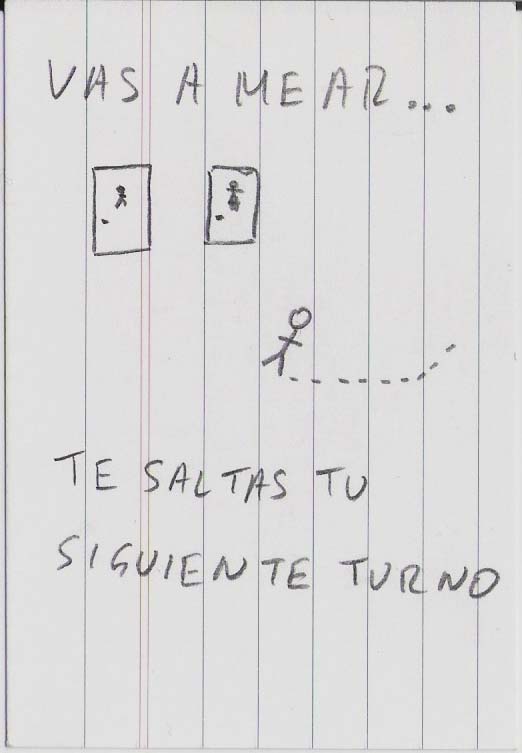 VAS A MEAR...
TE SALTAS TU
SIGUIENTE TURNO